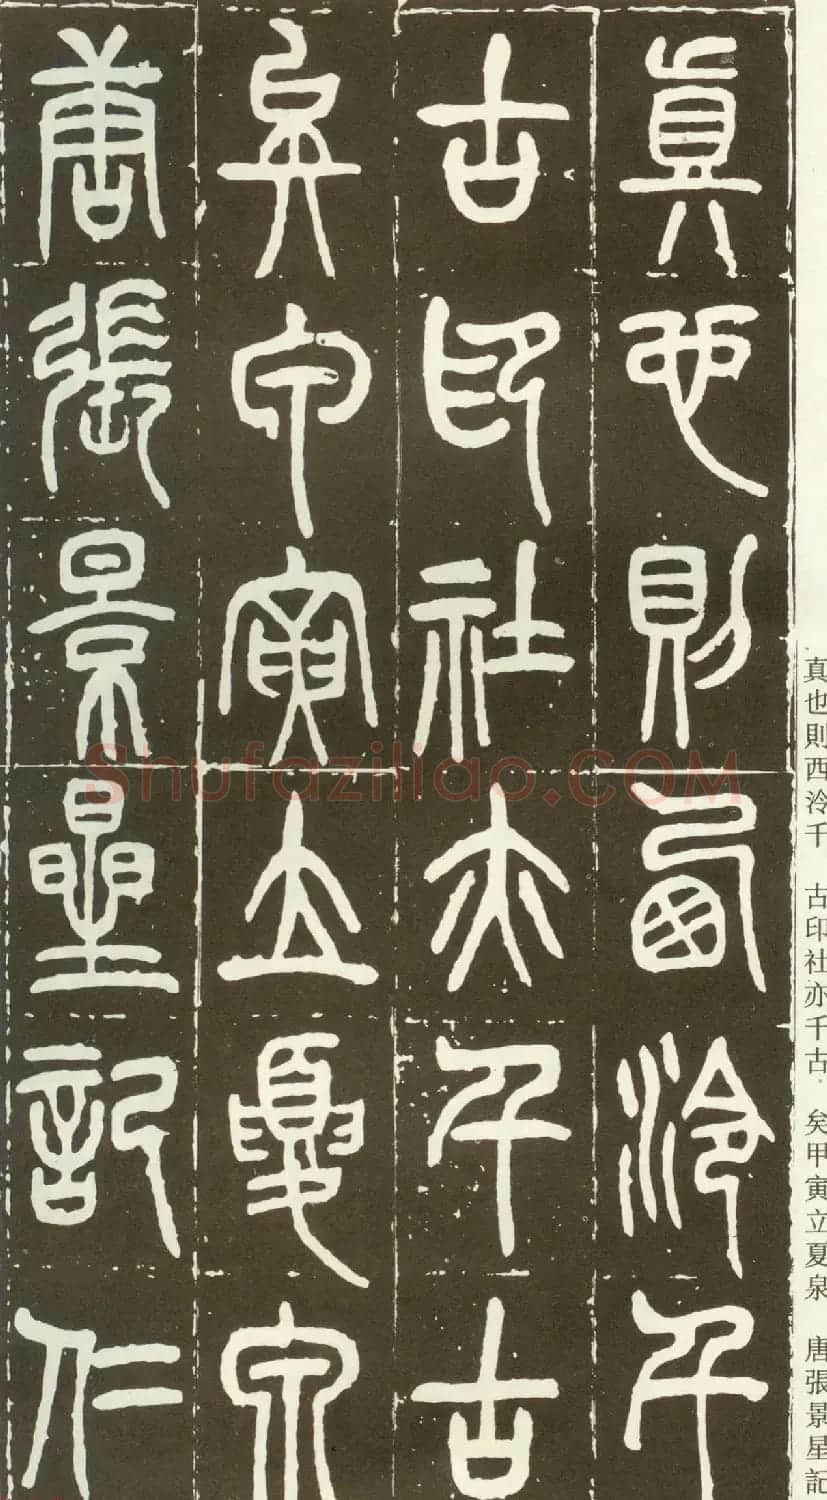 真也則西泠千
古印社亦千古
矣甲寅立夏泉
唐張景星記仁
真也則西泠千 古印社亦千古 矣甲寅立夏泉 唐張景星記
Shufaziliao.COM